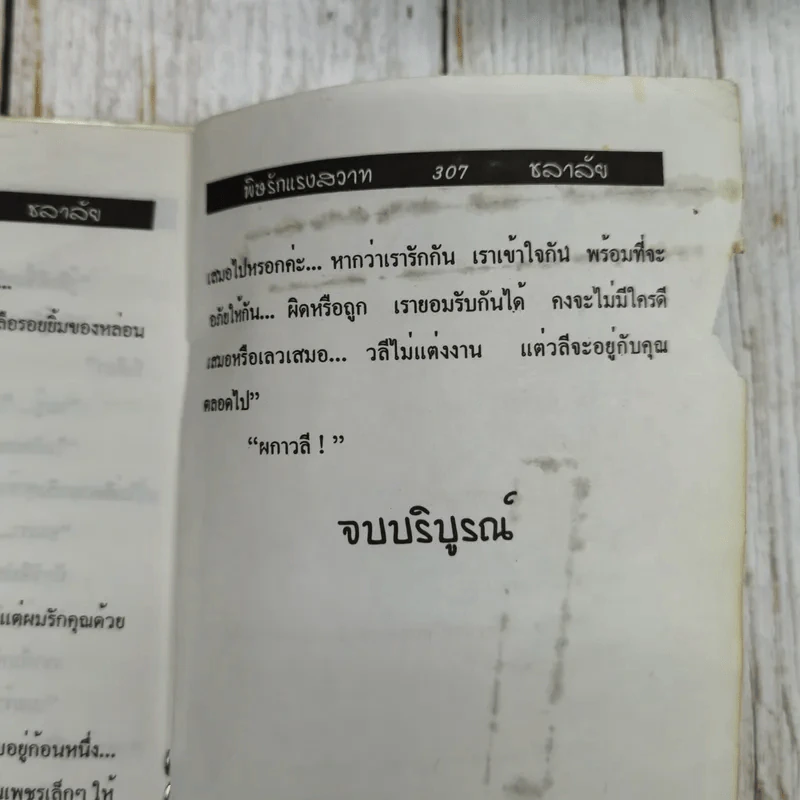 ชลาลัย
...
ลือรอยยิ้มของหล่อน
แต่ผมรักคุณด้วย
อยู่ก้อนหนึ่ง...
เพชรเล็กๆ ให้
พิษรักแรงสวาท 307 ชลาลัย
เสมอไปหรอกค่ะ... หากว่าเรารักกัน เราเข้าใจกัน พร้อมที่จะ
อภัยให้กัน... ผิดหรือถูก เรายอมรับกันได้ คงจะไม่มีใครดี
เสมอหรือเลวเสมอ... วลีไม่แต่งงาน แต่วลีจะอยู่กับคุณ
ตลอดไป”
“ผกาวลี ! ”
จบบริบูรณ์